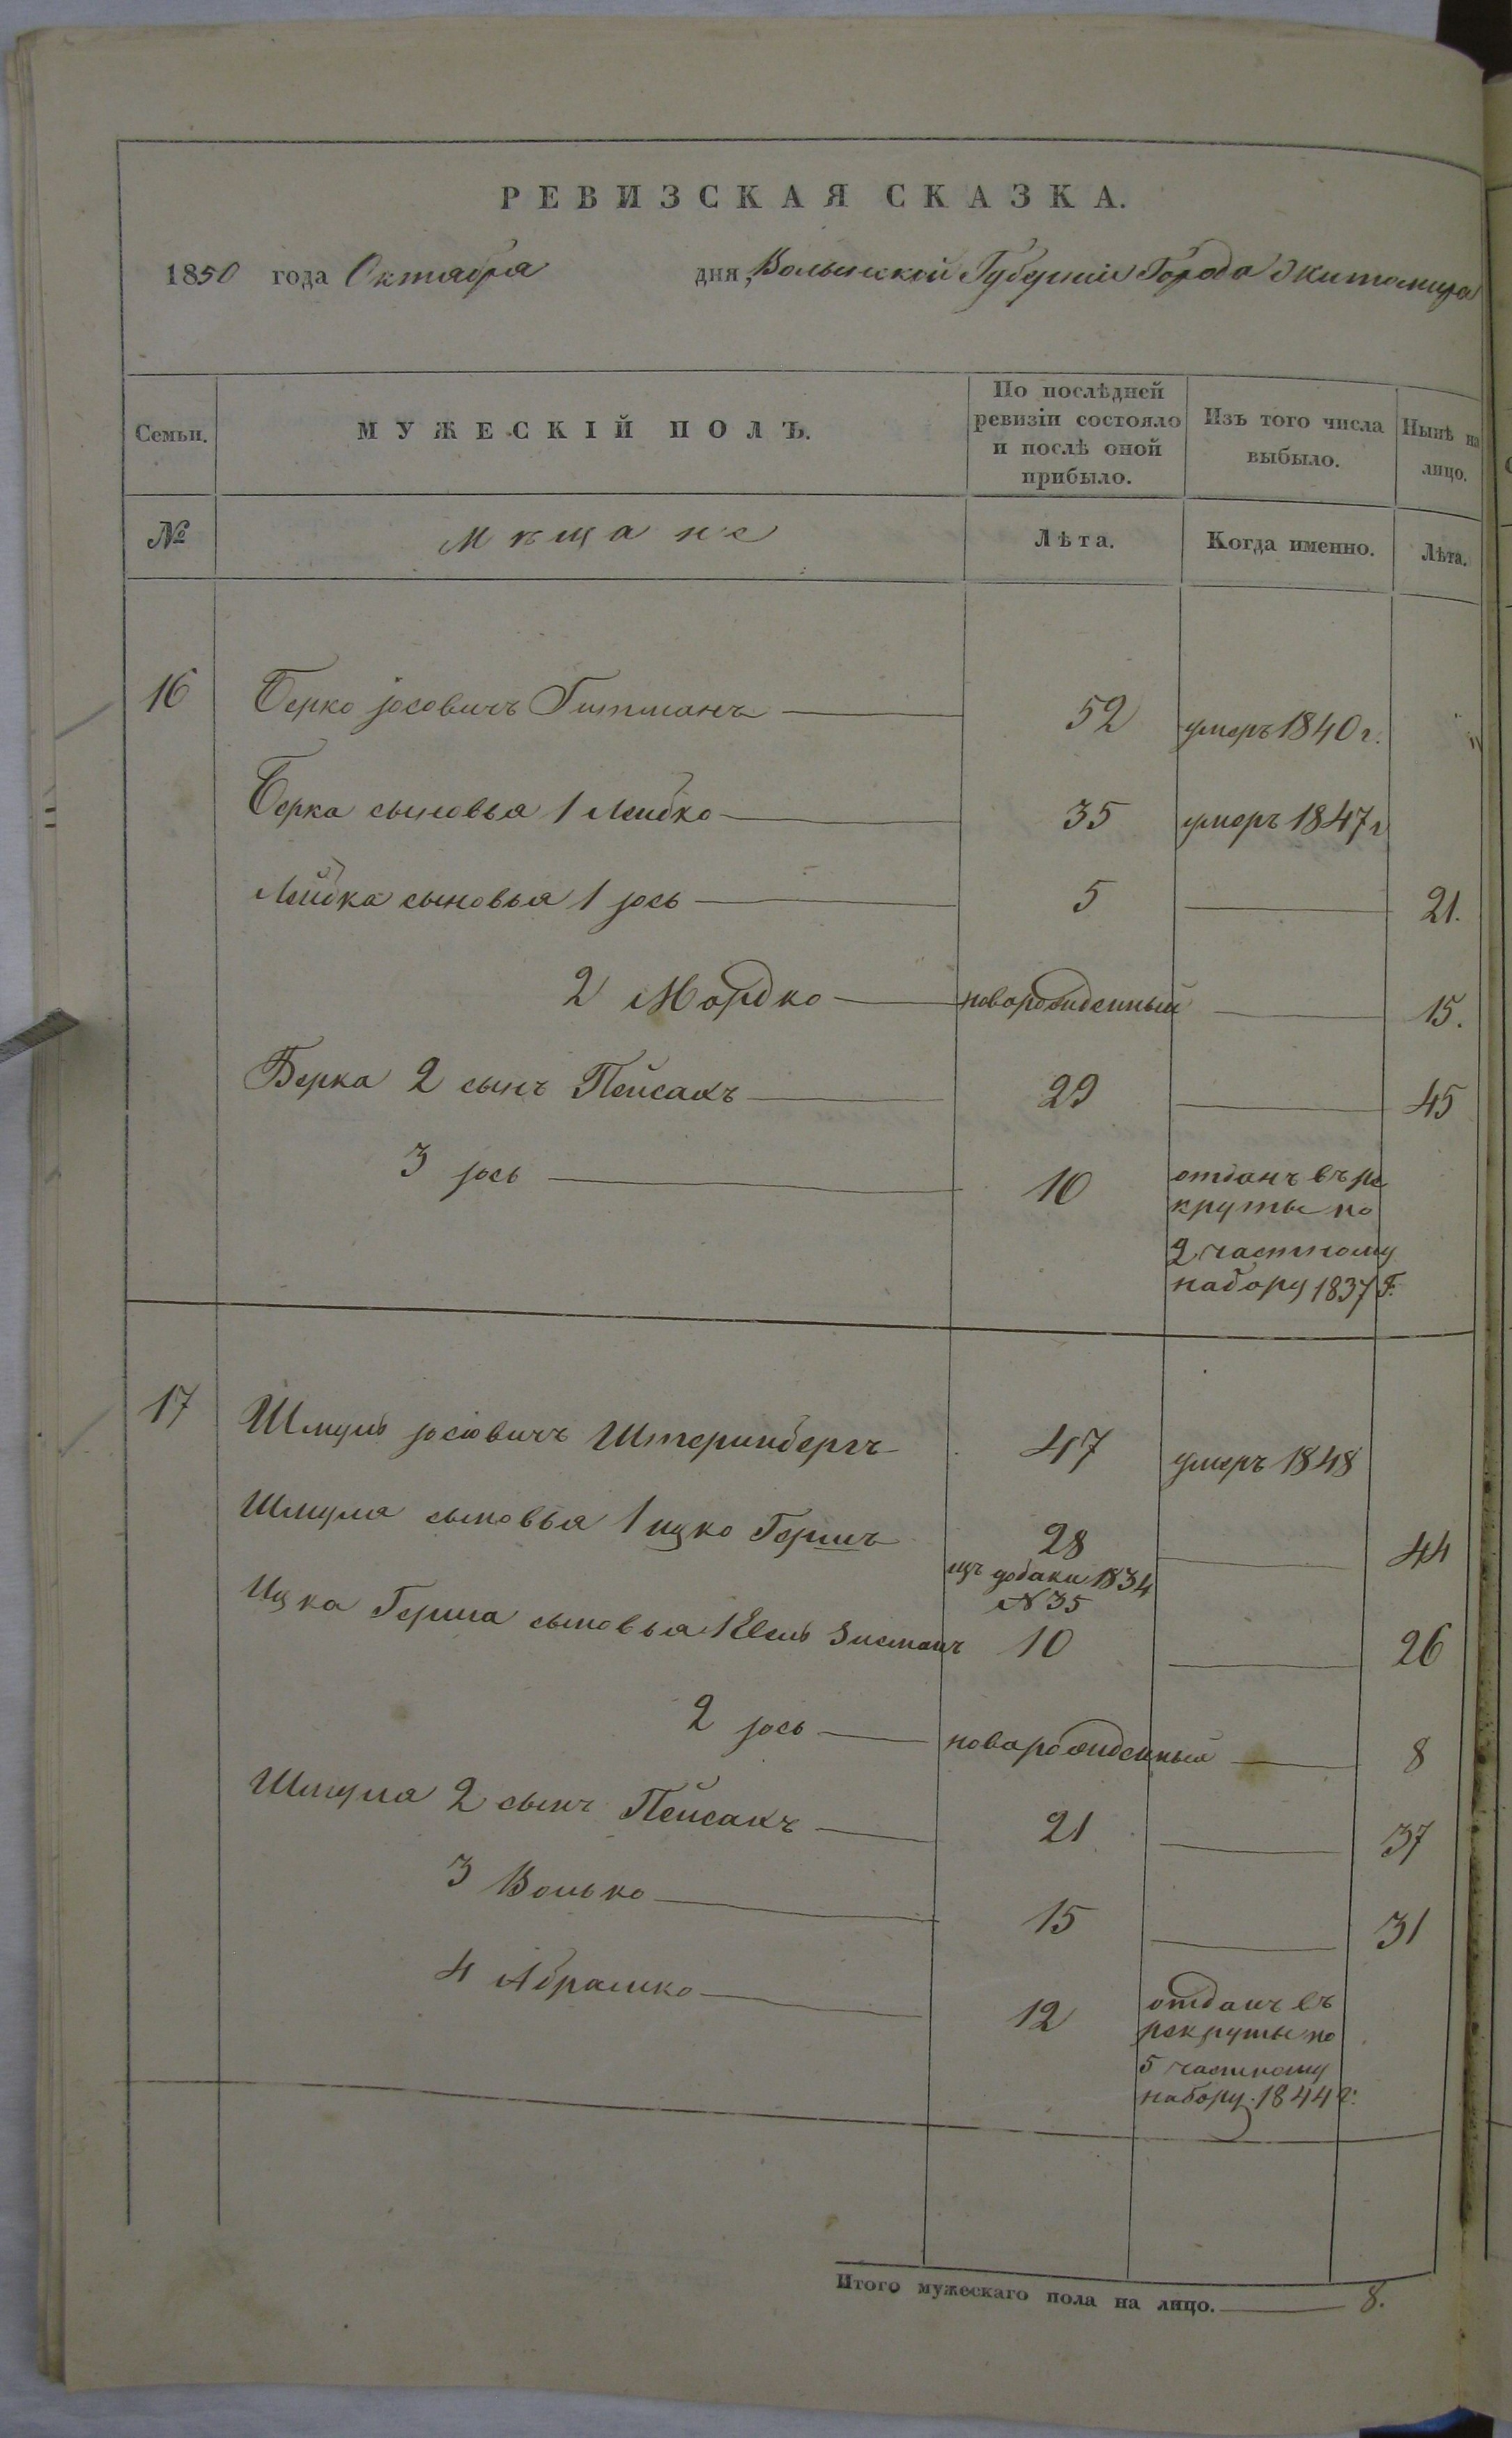 РЕВИЗСКАЯ СКАЗКА.
1850 года Октября дня, Волынской Губерніи Города Житомира
Семьи. МУЖЕСКІЙ ПОЛЪ. По послѣдней ревизіи состояло и послѣ оной прибыло. Изъ того числа выбыло. Нынѣ на лицо.
№ Мѣщане Лѣта. Когда именно. Лѣта.
16 Берко Іосовичъ Гитманъ 52 умеръ 1840 г. "
Берка сыновья 1 Лейбко 35 умеръ 1847 г
Лейбка сыновья 1 Іось 5 21.
2 Мордко новорожденный 15.
Берка 2 сынъ Пейсахъ 29 45
3 Іось 16 отданъ въ ре
круты по
2 частному
набору 1837 Г.
17 Шмуль Іосіовичъ Штеринбергъ 47 умеръ 1848
Шмуля сыновья 1 Ицко Гершъ 28 44
изъ добавки 1834
№ 35
Ицка Герша сыновья 1 Зисманъ 10 26
2 Іось новорожденный 8
Шмуля 2 сынъ Пейсахъ 21 37
3 Волько 15 31
4 Абрамко 12 отданъ въ
рекруты по
5 частному
набору 1844 г.
Итого мужескаго пола на лицо. 8.